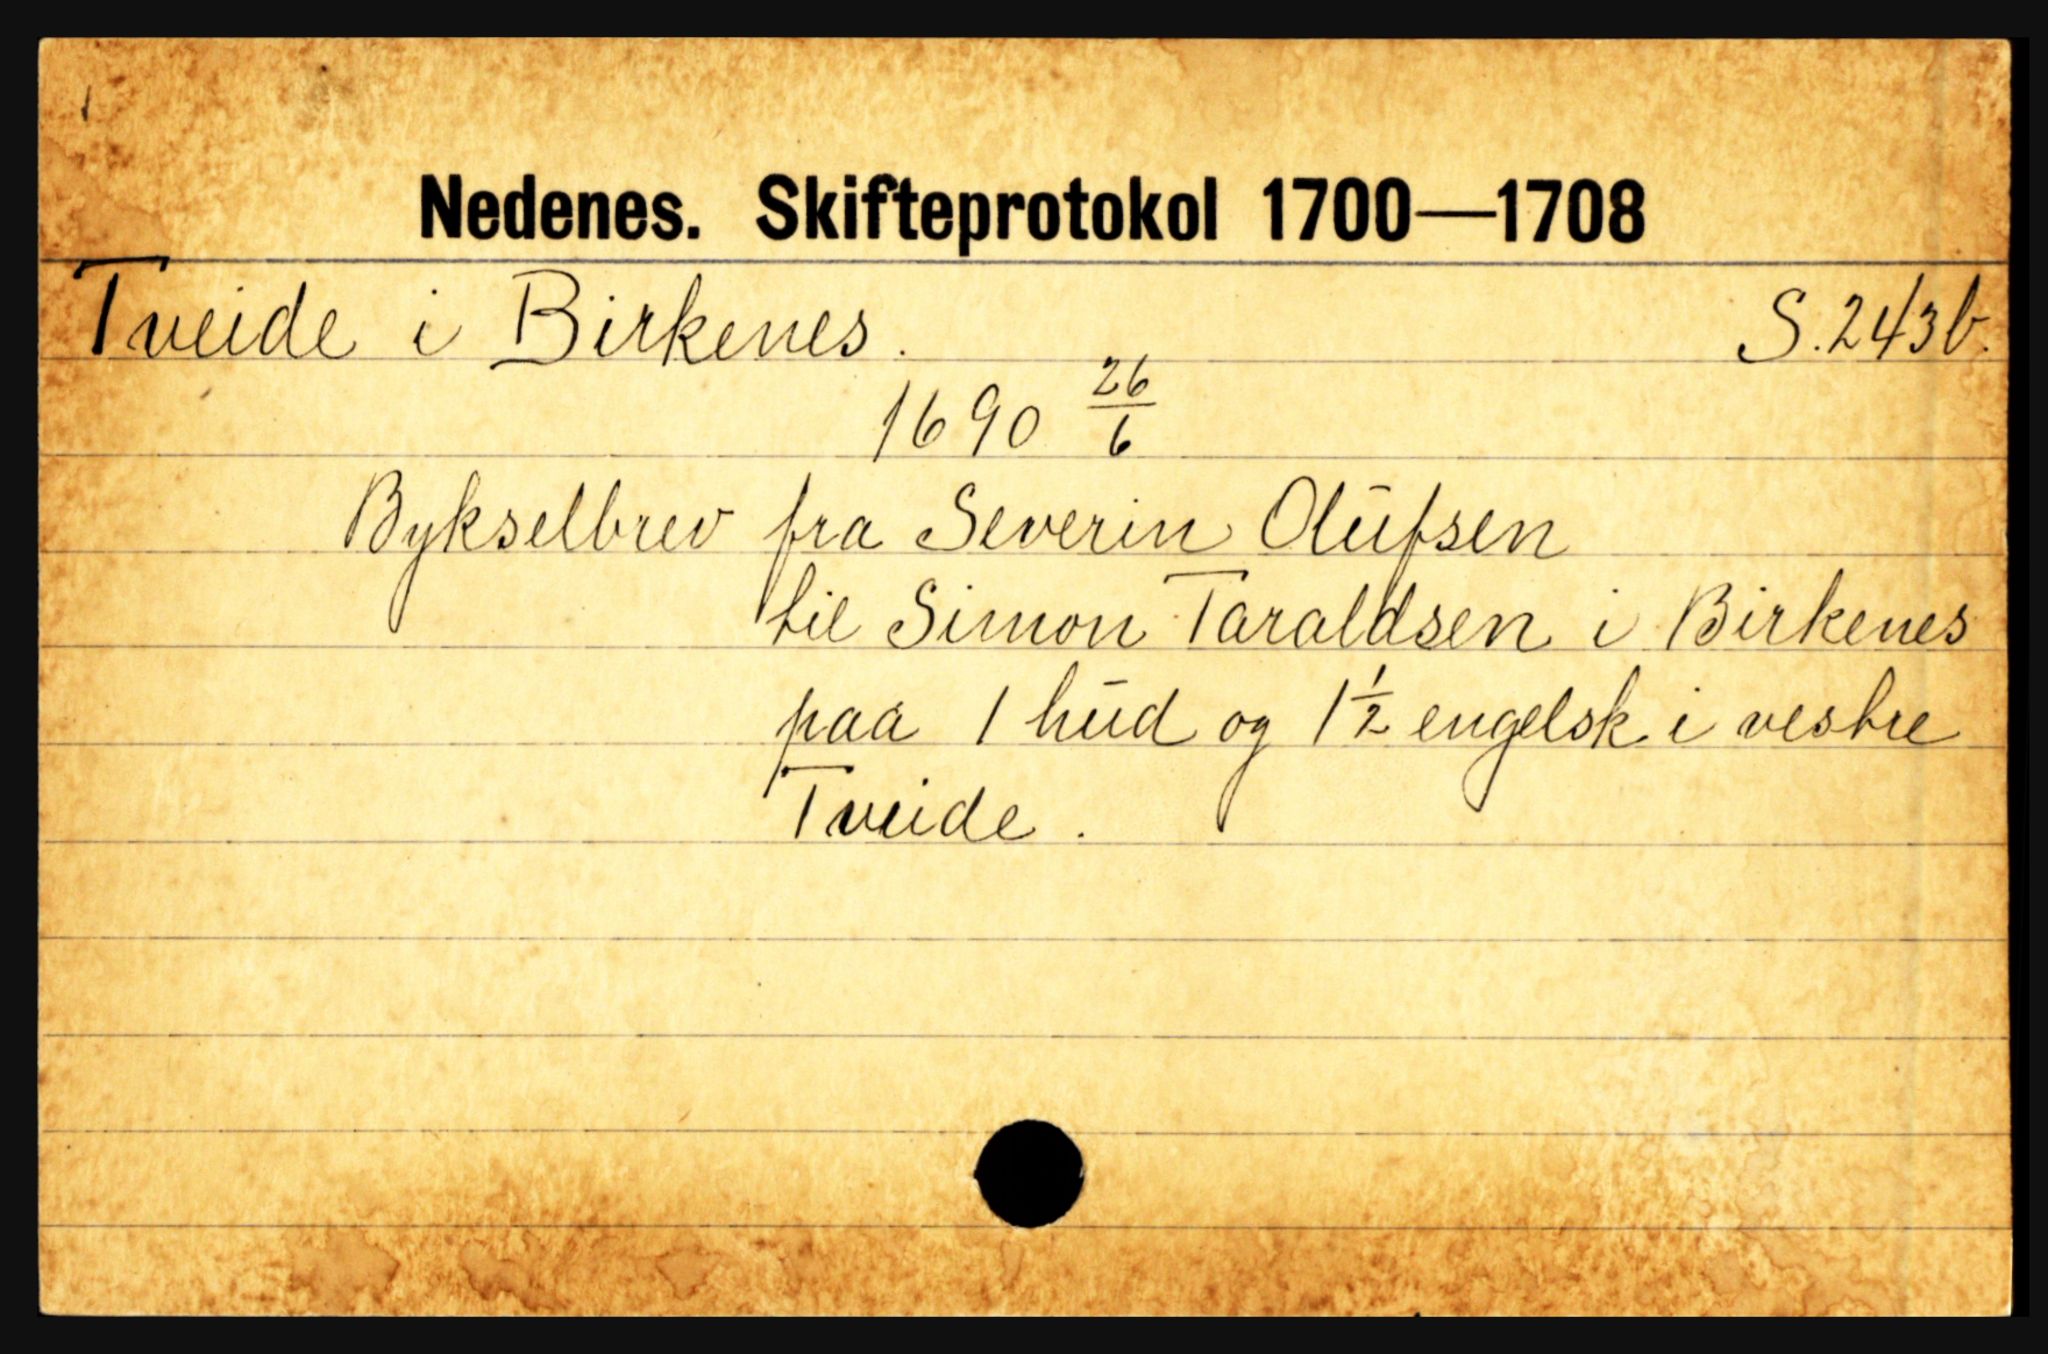 Nedenes. Skifteprotokol 1700—1708
Tveide i Birkenes. S. 243b.
1690 26/6
Bykselbrev fra Severin Olufsen
til Simon Taraldsen i Birkenes
paa 1 hud og 1 1/2 engelsk i vestre
Tveide.